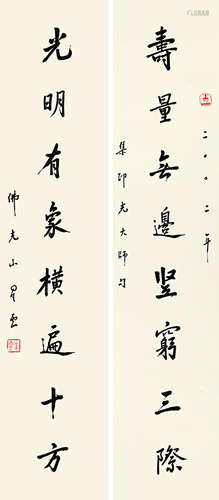 二〇〇二年
壽量無邊竪窮三際
集印光大師句
光明有象橫遍十方
佛光山星雲